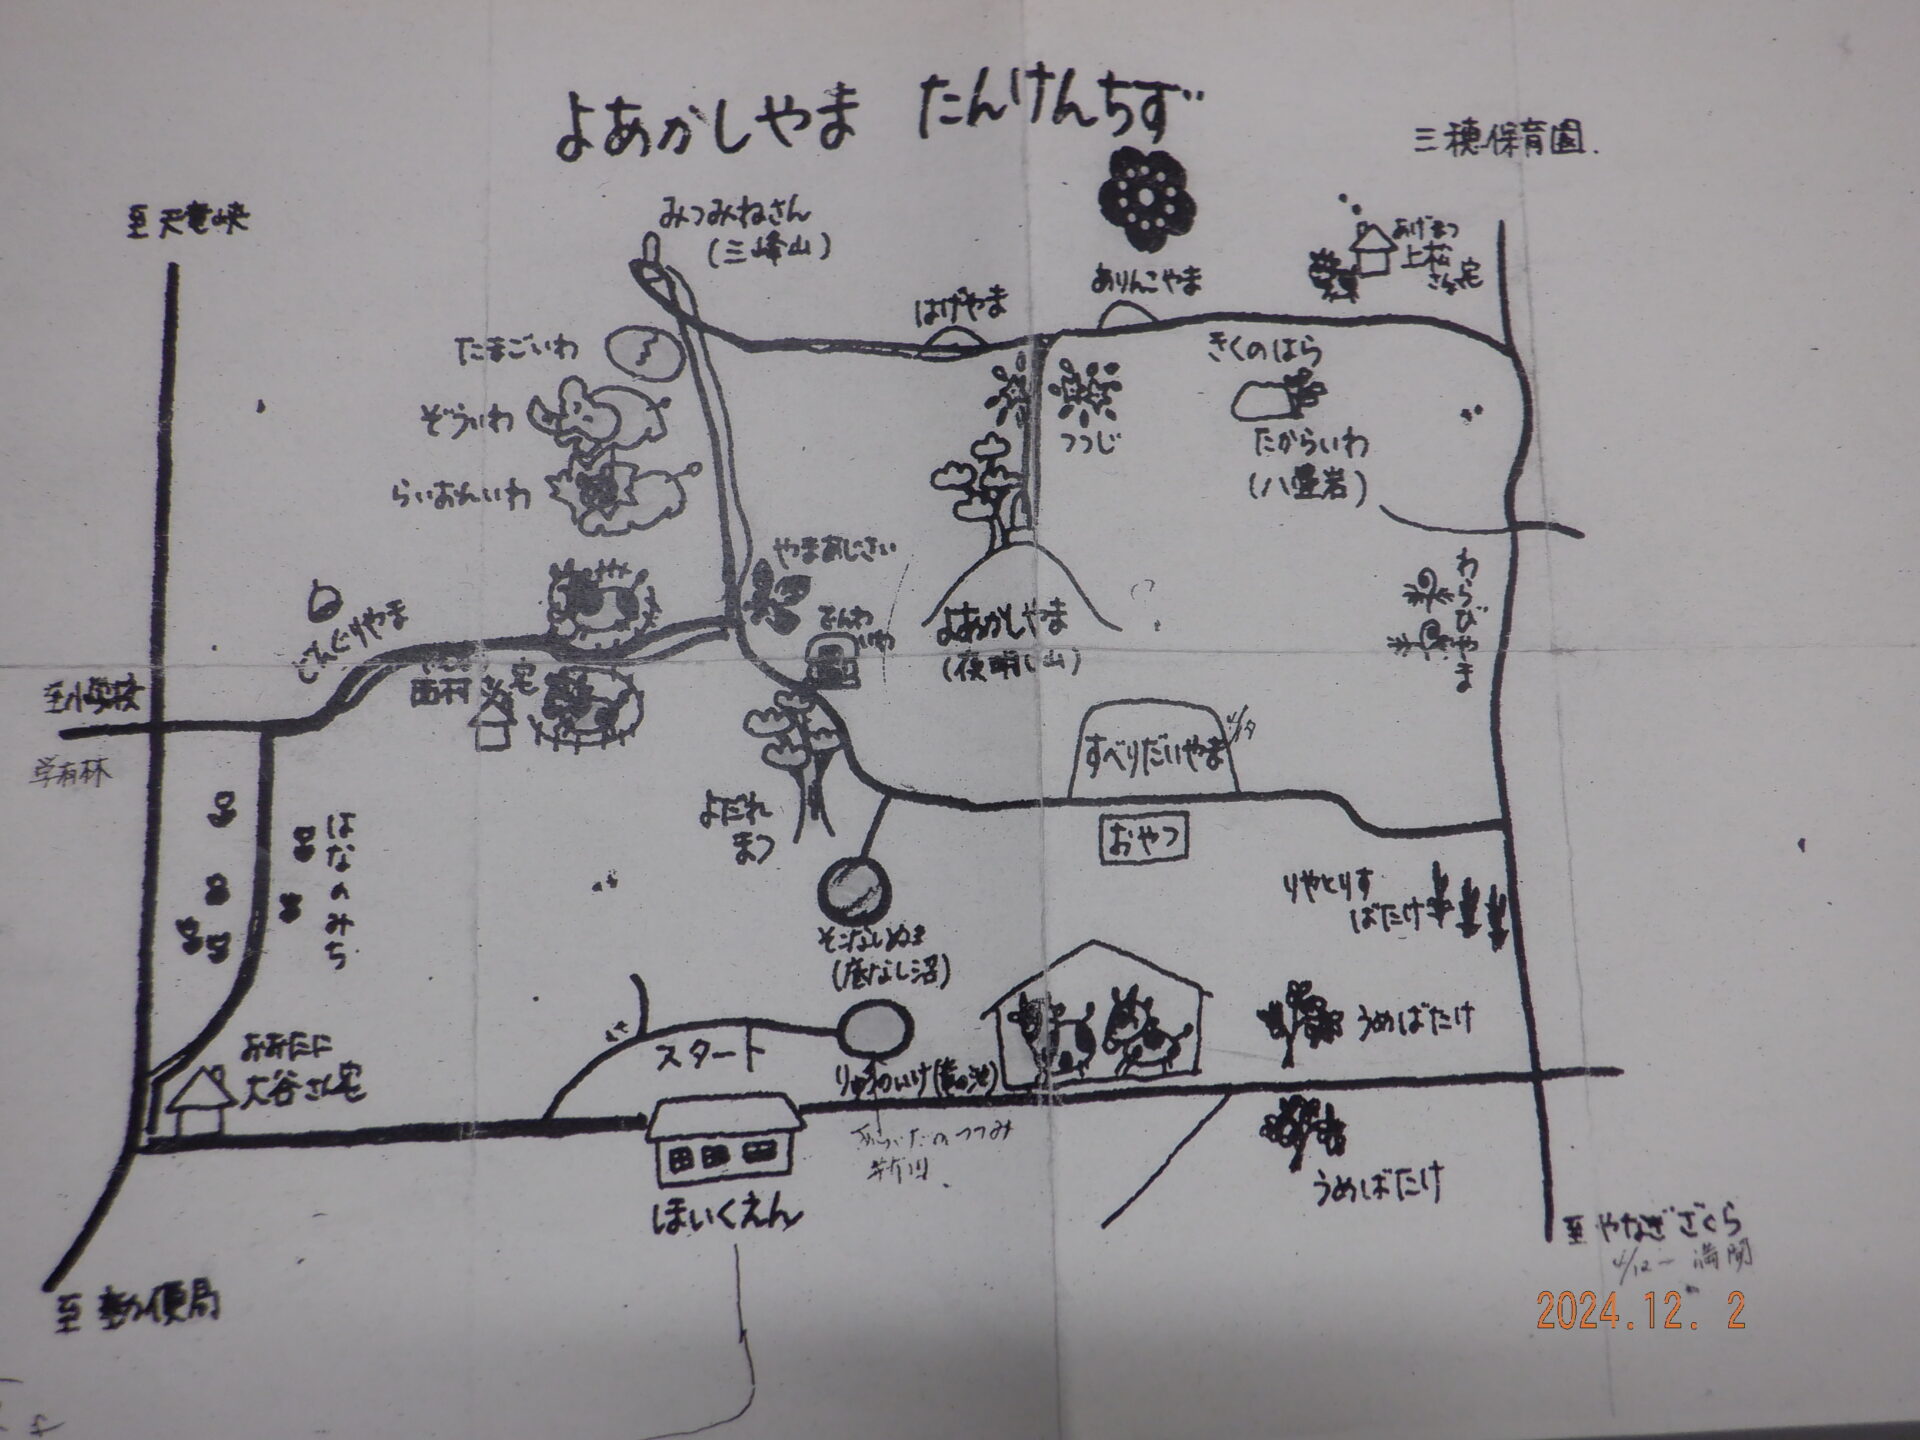 よあかしやま たんけんちず
三穂保育園.
至天竜峡
みつみねさん
(三峰山)
あげまつ
上松
さん宅
はげやま
ありんこやま
たまごいわ
きくのはら
ぞういわ
つつじ
たからいわ
(八畳岩)
らいおんいわ
やまあじさい
わらびやま
でんわ
いわ
どんぐりやま
よあかしやま
(夜明し山)
西村さん宅
至小学校
学有林
すべりだいやま
よだれ
まつ
おやつ
はなのみち
りやとりす
ばたけ
そこなしぬま
(底なし沼)
うめばたけ
スタート
おおたに
大谷さん宅
りゅうのいけ(竜の池)
うめばたけ
ほいくえん
至やなぎざくら
4/12 満開
至郵便局
2024.12. 2